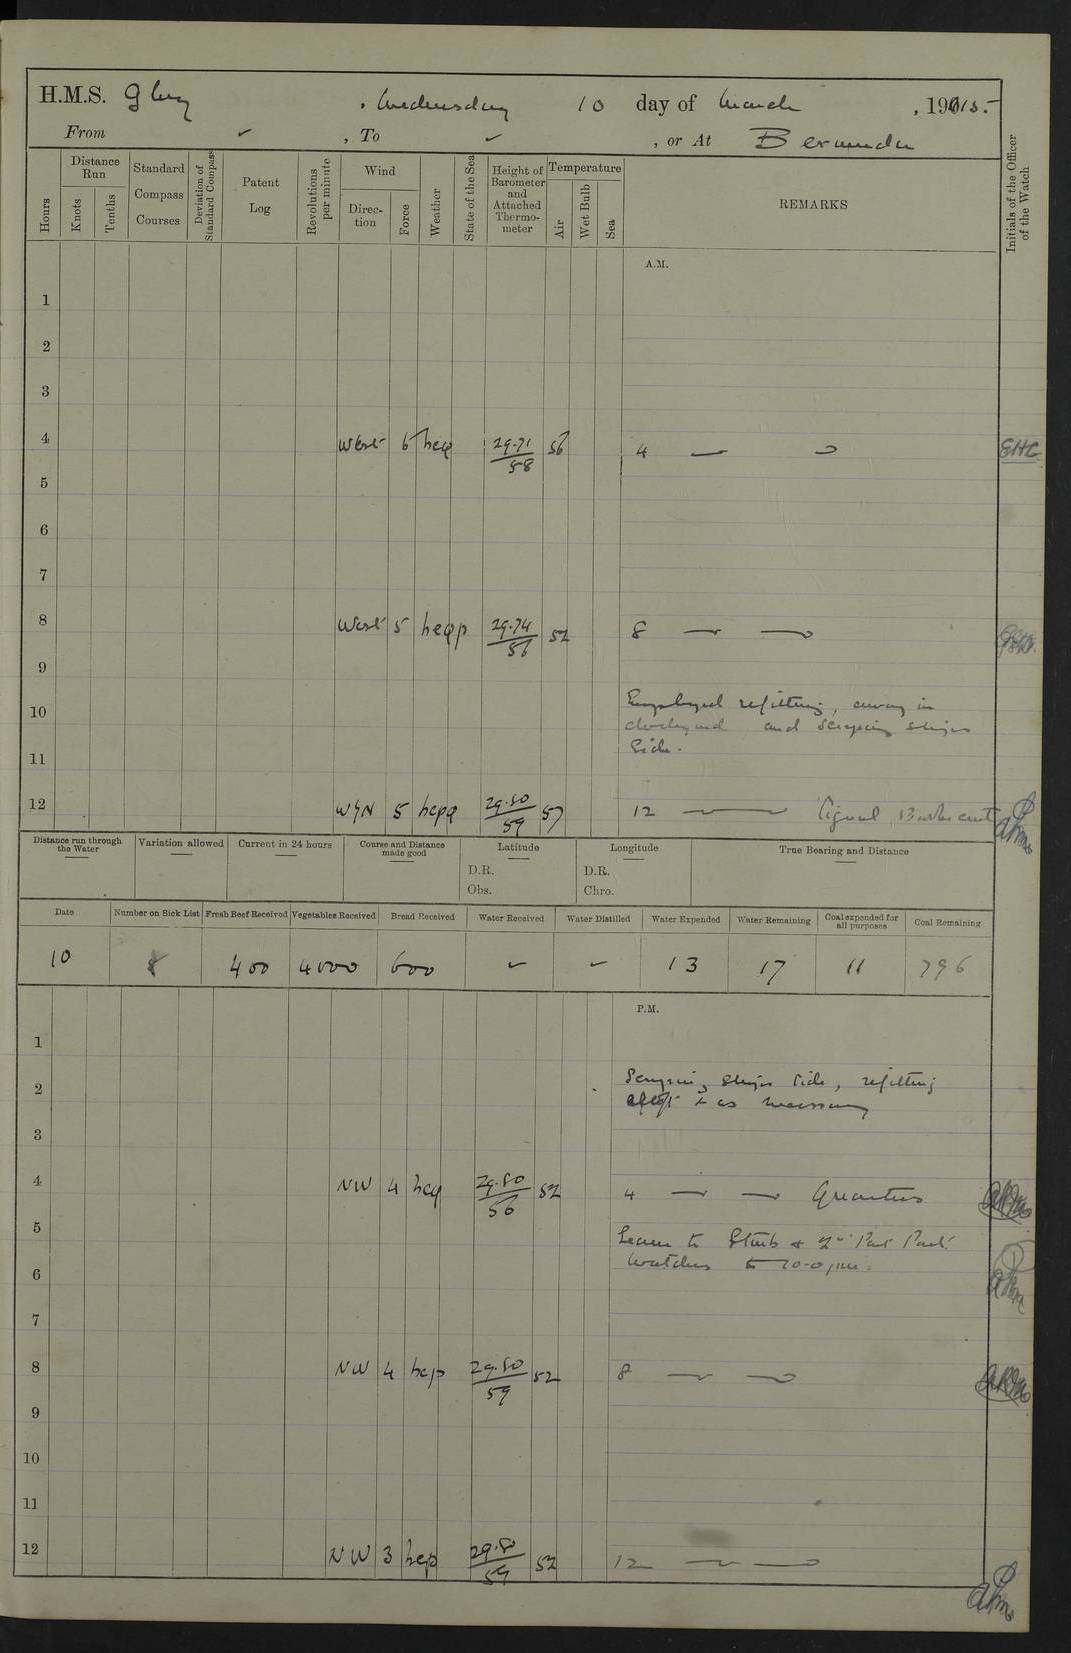 H.M.S. Glory , Wednesday 10 day of March , 1915.
From ✓ , To ✓ , or At Bermuda
Hours
Distance Run
Knots
Tenths
Standard Compass Courses
Deviation of Standard Compass
Patent Log
Revolutions per minute
Wind
Direction
Force
Weather
State of the Sea
Height of Barometer and Attached Thermometer
Temperature
Air
Wet Bulb
Sea
REMARKS
Initials of the Officer of the Watch
A.M.
1
2
3
4 West 6 bcq 29.71 58 56 4 EHC
5
6
7
8 West 5 bcqp 29.74 56 52 8
9
10 Employed refitting, away in
dockyard and scraping ships
11 side.
12 WbyN 5 bcpq 29.80 59 57 12
Distance run through the Water
Variation allowed
Current in 24 hours
Course and Distance made good
Latitude
D.R.
Obs.
Longitude
D.R.
Chro.
True Bearing and Distance
Date Number on Sick List Fresh Beef Received Vegetables Received Bread Received Water Received Water Distilled Water Expended Water Remaining Coal expended for all purposes Coal Remaining
10 8 400 4000 600 ✓ ✓ 13 17 11 796
P.M.
1
2 Scraping ships side, refitting
as necessary
3
4 NW 4 bcq 29.80 56 52 4 Quarters
5 Leave to Starb & 2nd Part Port
6 Watches to 10-0 pm.
7
8 NW 4 bcp 29.80 59 52 8
9
10
11
12 NW 3 bcp 29.80 59 52 12